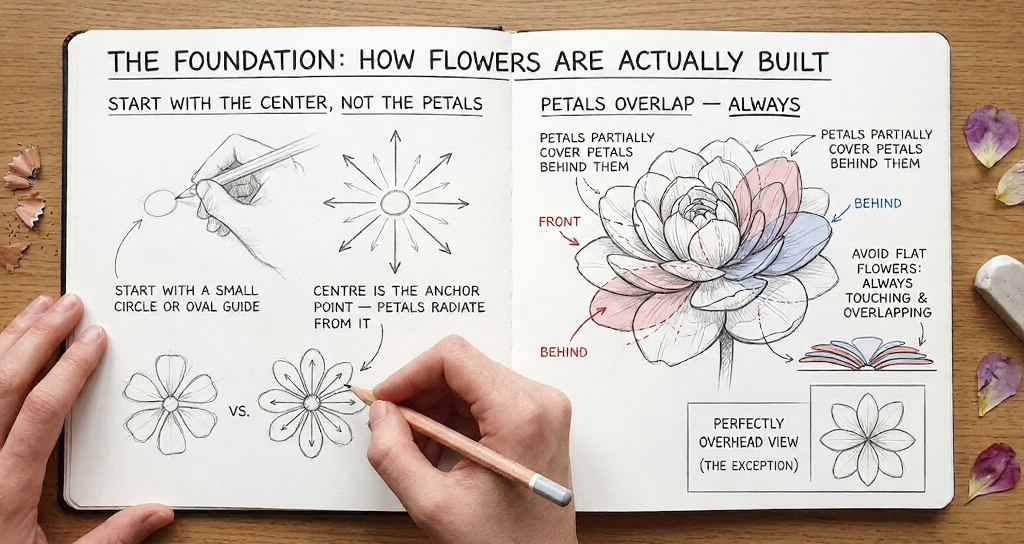 THE FOUNDATION: HOW FLOWERS ARE ACTUALLY BUILT
START WITH THE CENTER, NOT THE PETALS
START WITH A SMALL
CIRCLE OR OVAL GUIDE
CENTRE IS THE ANCHOR
POINT — PETALS RADIATE
FROM IT
VS.
PETALS OVERLAP — ALWAYS
PETALS PARTIALLY
COVER PETALS
BEHIND THEM
PETALS PARTIALLY
COVER PETALS
BEHIND THEM
FRONT
BEHIND
BEHIND
AVOID FLAT
FLOWERS:
ALWAYS
TOUCHING &
OVERLAPPING
PERFECTLY
OVERHEAD VIEW
(THE EXCEPTION)